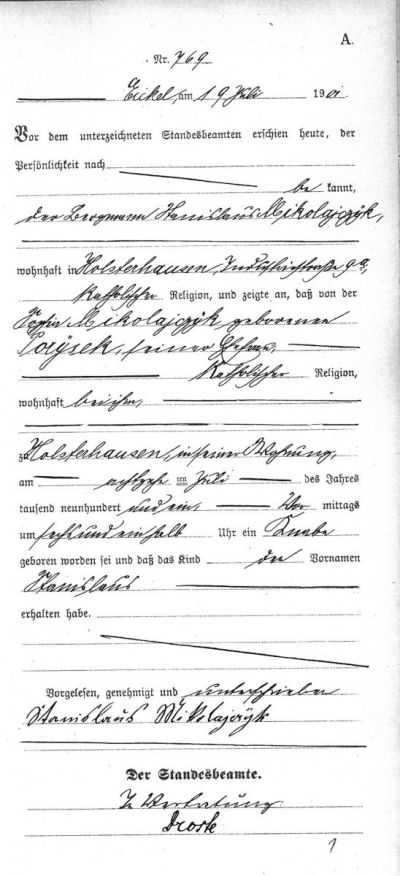 A.
Nr. 769
Eickel, am 19 Juli 1901.
Vor dem unterzeichneten Standesbeamten erschien heute, der
Persönlichkeit nach
be kannt,
der Bergmann Stanislaus Mikolajczyk,
wohnhaft in Holsterhausen, Industriestraße 9a,
katholischer Religion, und zeigte an, daß von der
Mikolajczyk, geborenen
seiner Ehefrau,
katholischer Religion,
wohnhaft bei ihm,
zu Holsterhausen, in seiner Wohnung,
am achtzehn ten Juli des Jahres
tausend neunhundert und eins Vor mittags
um sechs und ein halb Uhr ein Knabe
geboren worden sei und daß das Kind den Vornamen
Stanislaus
erhalten habe.
Vorgelesen, genehmigt und unterschrieben
Stanislaus Mikolajczyk
Der Standesbeamte.
In Vertretung
Droste
1